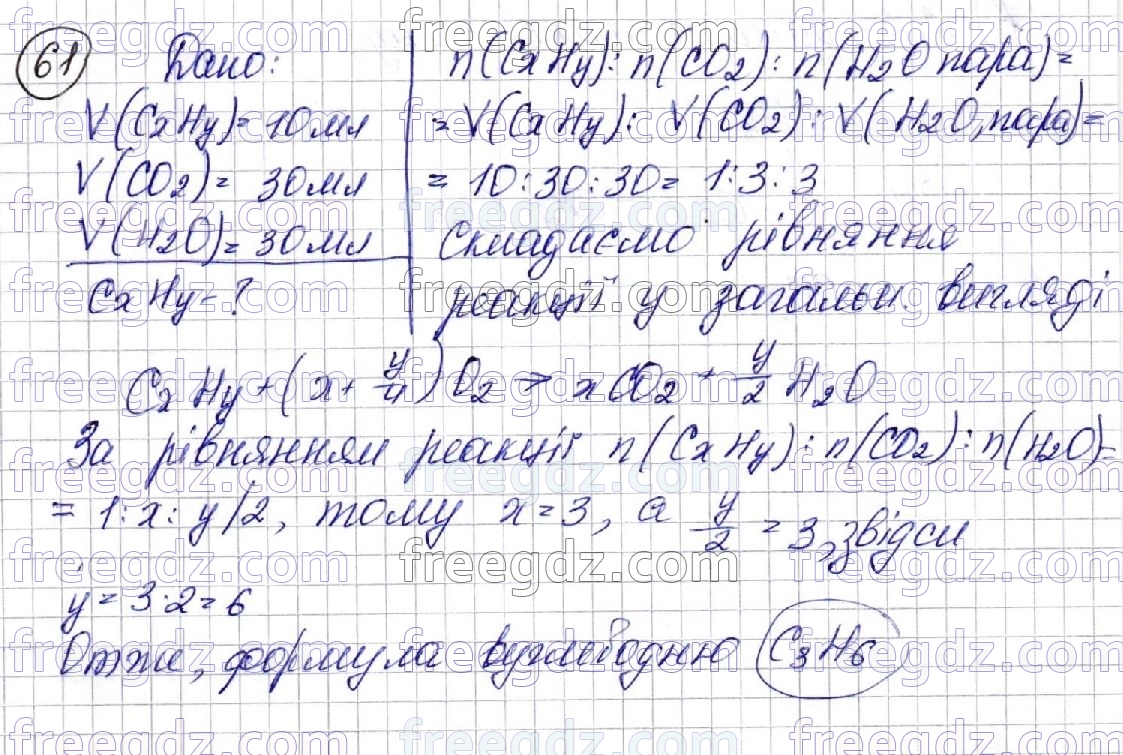 61
Дано:
V(CxHy)= 10мл
V(CO2)= 30мл
V(H2O)= 30мл
CxHy-?
n(CxHy): n(CO2): n(H2O пара)=
= V(CxHy): V(CO2): V(H2O, пара)=
= 10:30:30= 1:3:3
Складаємо рівняння
реакції у загальн. вигляді
CxHy + (x + y/4) O2 → xCO2 + y/2 H2O
За рівнянням реакції n(CxHy):n(CO2):n(H2O)=
= 1:x:y/2, тому x=3, а y/2 = 3, звідси
y= 3·2=6
Отже, формула вуглеводню C3H6
freegdz.com